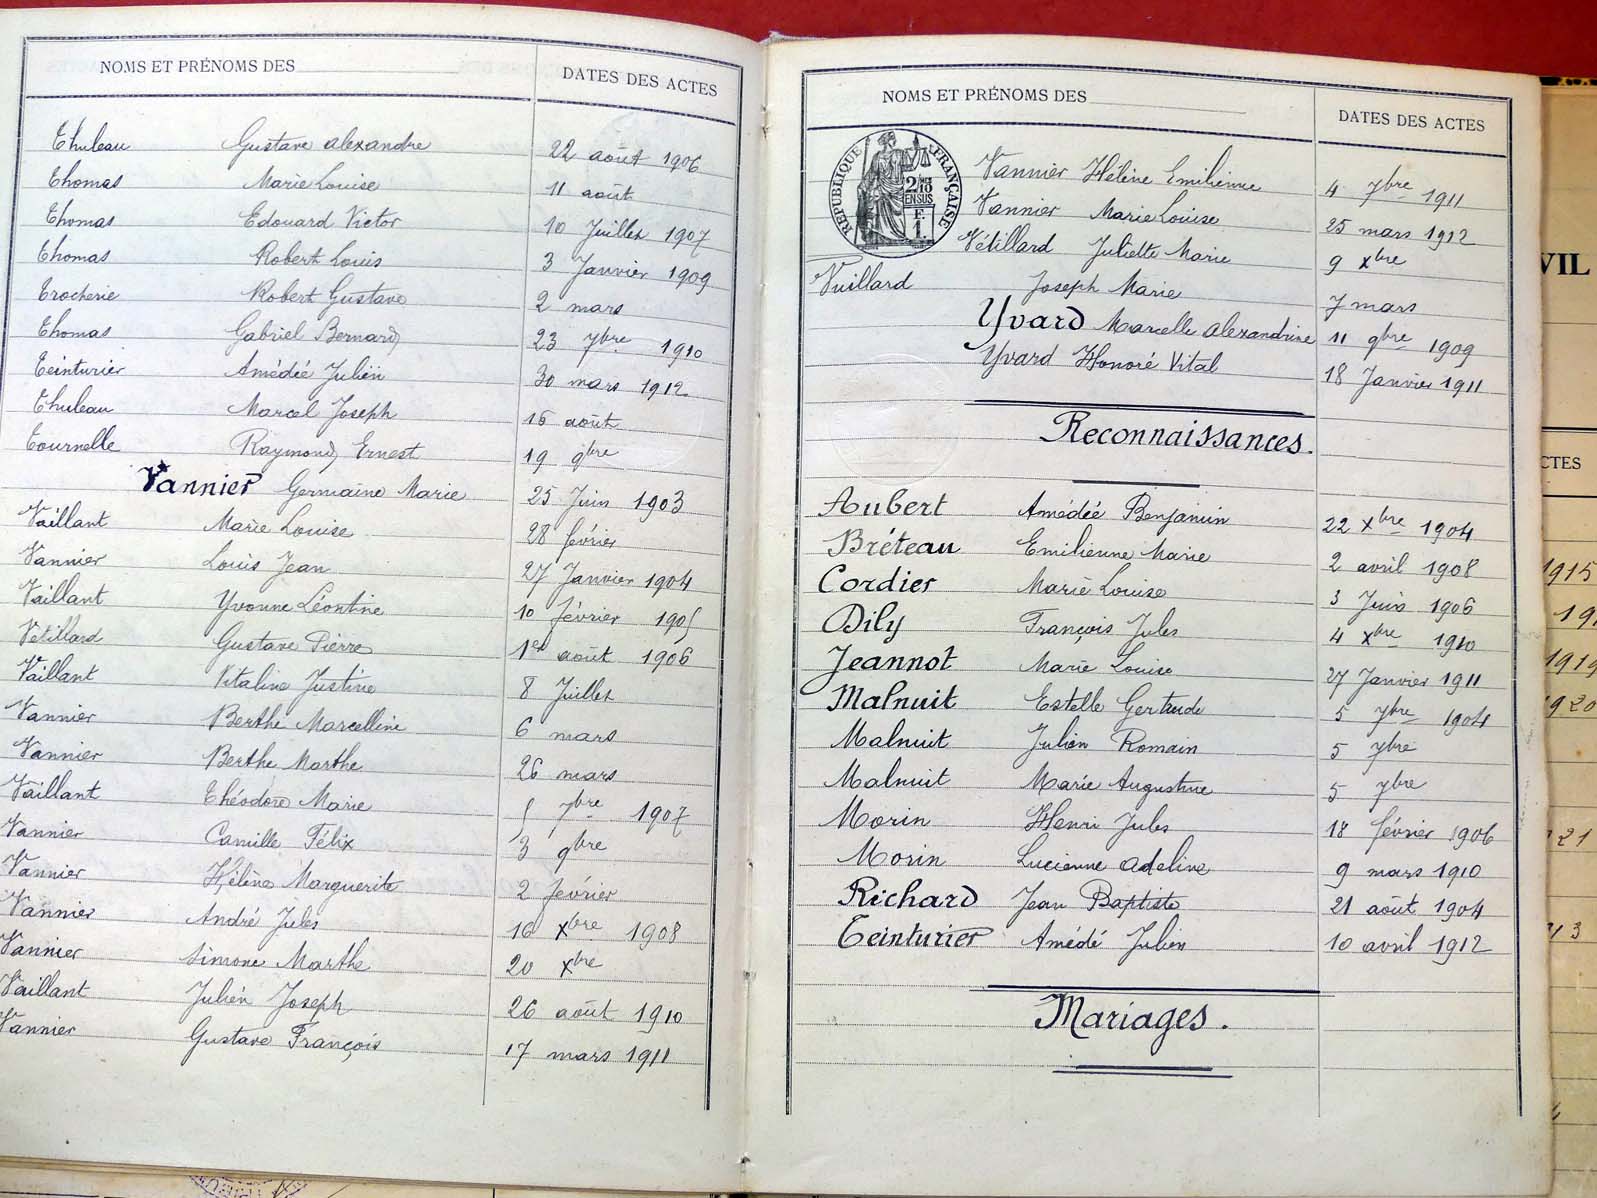 NOMS ET PRÉNOMS DES DATES DES ACTES
Thuleau Gustave Alexandre 22 août 1906
Thomas Marie Louise 11 août
Thomas Edouard Victor 10 Juillet 1907
Thomas Robert Louis 3 Janvier 1909
Trocherie Robert Gustave 2 mars
Thomas Gabriel Bernard 23 7bre 1910
Teinturier Amédée Julien 30 mars 1912
Thuleau Marcel Joseph 16 août
Tournelle Raymond Ernest 19 9bre
Vannier Germaine Marie 25 Juin 1903
Vaillant Marie Louise 28 février
Vannier Louis Jean 27 Janvier 1904
Vaillant Yvonne Léontine 10 février 1905
Vétillard Gustave Pierre 1er août 1906
Vaillant Vitaline Justine 8 Juillet
Vannier Berthe Marcelline 6 mars
Vannier Berthe Marthe 26 mars
Vaillant Théodore Marie 5 7bre 1907
Vannier Camille Félix 3 9bre
Vannier Hélène Marguerite 2 février
Vannier André Jules 16 Xbre 1908
Vannier Simone Marthe 20 Xbre
Vaillant Julien Joseph 26 août 1910
Vannier Gustave François 17 mars 1911
NOMS ET PRÉNOMS DES DATES DES ACTES
RÉPUBLIQUE FRANÇAISE
2/10
EN SUS
F.
1.
Vannier Hélène Emilienne 4 7bre 1911
Vannier Marie Louise 25 mars 1912
Vétillard Juliette Marie 9 Xbre
Vuillard Joseph Marie 7 mars
Yvard Marcelle Alexandrine 11 9bre 1909
Yvard Honoré Vital 18 Janvier 1911
Reconnaissances.
Aubert Amédéé Benjamin 22 Xbre 1904
Bréteau Emilienne Marie 2 avril 1908
Cordier Marie Louise 3 Juin 1906
Dily François Jules 4 Xbre 1910
Jeannot Marie Louise 27 Janvier 1911
Malnuit Estelle Gertrude 5 7bre 1904
Malnuit Julien Romain 5 7bre
Malnuit Marie Augustine 5 7bre
Morin Henri Jules 18 février 1906
Morin Lucienne Adeline 9 mars 1910
Richard Jean Baptiste 21 août 1904
Teinturier Amédé Julien 10 avril 1912
Mariages.
VIL
CTES
1915
19
1919
920
21
13